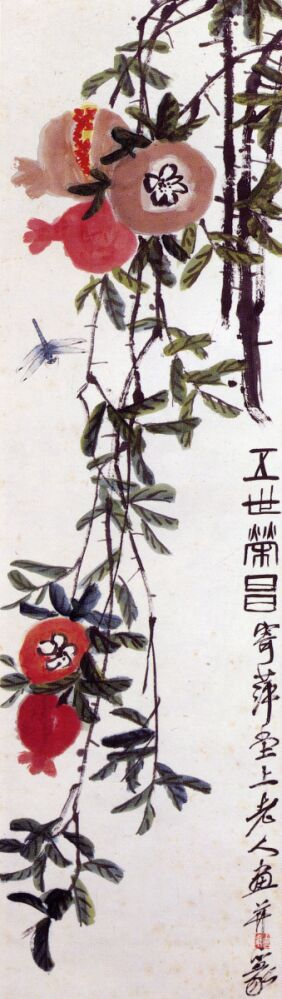 五世榮昌
寄萍堂上老人畫并篆